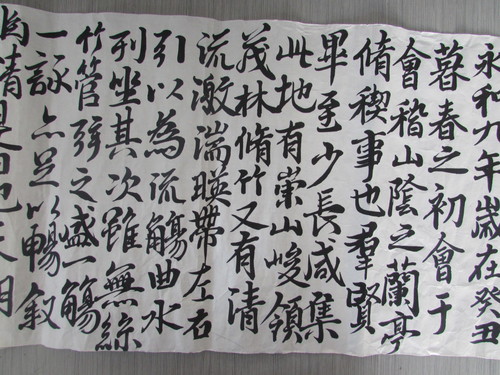 永和九年歲在癸丑
暮春之初會于
會稽山陰之蘭亭
脩稧事也羣賢
畢至少長咸集
此地有崇山峻領
茂林脩竹又有清
流激湍暎帶左右
引以為流觴曲水
列坐其次雖無絲
竹管弦之盛一觴
一詠亦足以暢叙
情是日也天朗